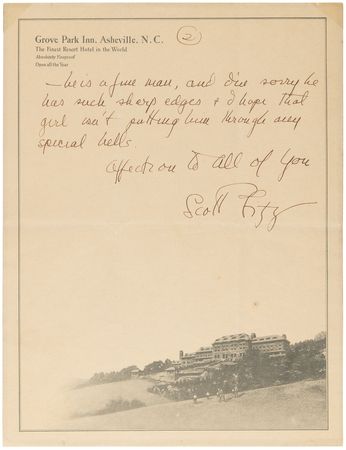 Grove Park Inn, Asheville, N. C.
The Finest Resort Hotel in the World
Absolutely Fireproof
Open all the Year
2
—he is a fine man, and I'm sorry he
has such sharp edges + I hope that
girl isn't putting him through any
special hells.
Affection to all of you
Scott Fitz